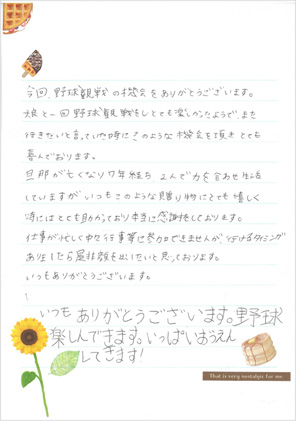 今回、野球観戦の機会をありがとうございます。
娘と一回野球観戦をしとても楽しかったようで、また
行きたいと言っていた時にこのような機会を頂き とても
喜んでおります。
旦那が亡くなり7年経ち 2人で力を合わせ生活
していますが いつもこのような贈り物にとても嬉しく
時にはとても助かっており本当に感謝をしております。
仕事が忙しく中々行事等に参加できませんが、行けるタイミング
ありましたら是非顔を出したいと思っております。
いつもありがとうございます。
いつも ありがとうございます。野球
楽しんできます。いっぱいおうえん
してきます!
That is very nostalgic for me.